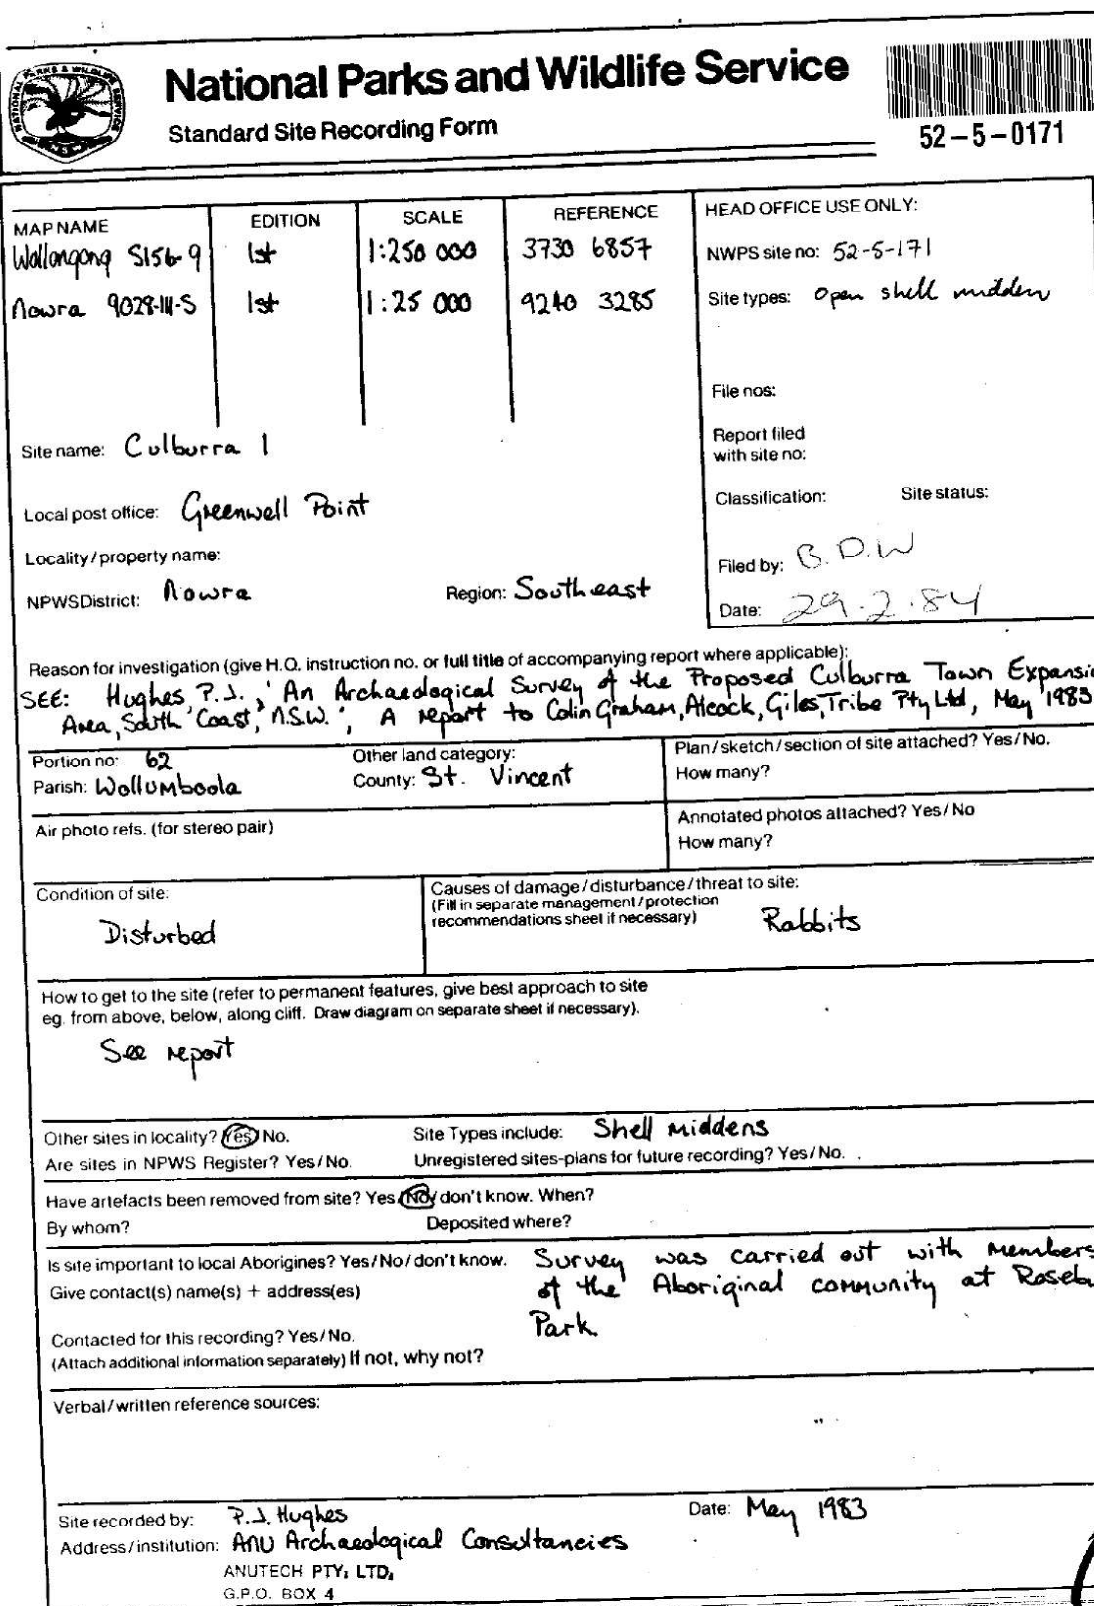 National Parks and Wildlife Service
Standard Site Recording Form
52-5-0171
NATIONAL PARKS & WILDLIFE SERVICE
MAP NAME EDITION SCALE REFERENCE
Wollongong SI56-9 1st 1:250 000 3730 6857
Nowra 9028-III-S 1st 1:25 000 9240 3285
HEAD OFFICE USE ONLY:
NWPS site no: 52-5-171
Site types: Open shell midden
File nos:
Report filed
with site no:
Classification: Site status:
Filed by: B.D.W
Date: 29.2.84
Site name: Culburra 1
Local post office: Greenwell Point
Locality/property name:
NPWS District: Nowra Region: Southeast
Reason for investigation (give H.Q. instruction no. or full title of accompanying report where applicable):
SEE: Hughes, P.J., 'An Archaeological Survey of the Proposed Culburra Town Expansi
Area, South Coast, N.S.W.', A report to Colin Graham, Alcock, Giles, Tribe Pty Ltd, May 1983
Portion no: 62 Other land category:
Parish: Wollumboola County: St. Vincent
Plan/sketch/section of site attached? Yes/No.
How many?
Air photo refs. (for stereo pair)
Annotated photos attached? Yes/No
How many?
Condition of site:
Disturbed
Causes of damage/disturbance/threat to site:
(Fill in separate management/protection
recommendations sheet if necessary) Rabbits
How to get to the site (refer to permanent features, give best approach to site
eg. from above, below, along cliff. Draw diagram on separate sheet if necessary).
See report
Other sites in locality? Yes/No. Site Types include: Shell Middens
Are sites in NPWS Register? Yes/No. Unregistered sites-plans for future recording? Yes/No.
Have artefacts been removed from site? Yes/No/don't know. When?
By whom? Deposited where?
Is site important to local Aborigines? Yes/No/don't know. Survey was carried out with members
Give contact(s) name(s) + address(es) of the Aboriginal community at Roseb
Park
Contacted for this recording? Yes/No.
(Attach additional information separately) If not, why not?
Verbal/written reference sources:
Site recorded by: P.J. Hughes Date: May 1983
Address/institution: ANU Archaeological Consultancies
ANUTECH PTY, LTD,
G.P.O. BOX 4